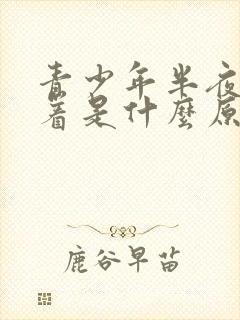 青少年半夜
着是什麼原
鹿谷早苗